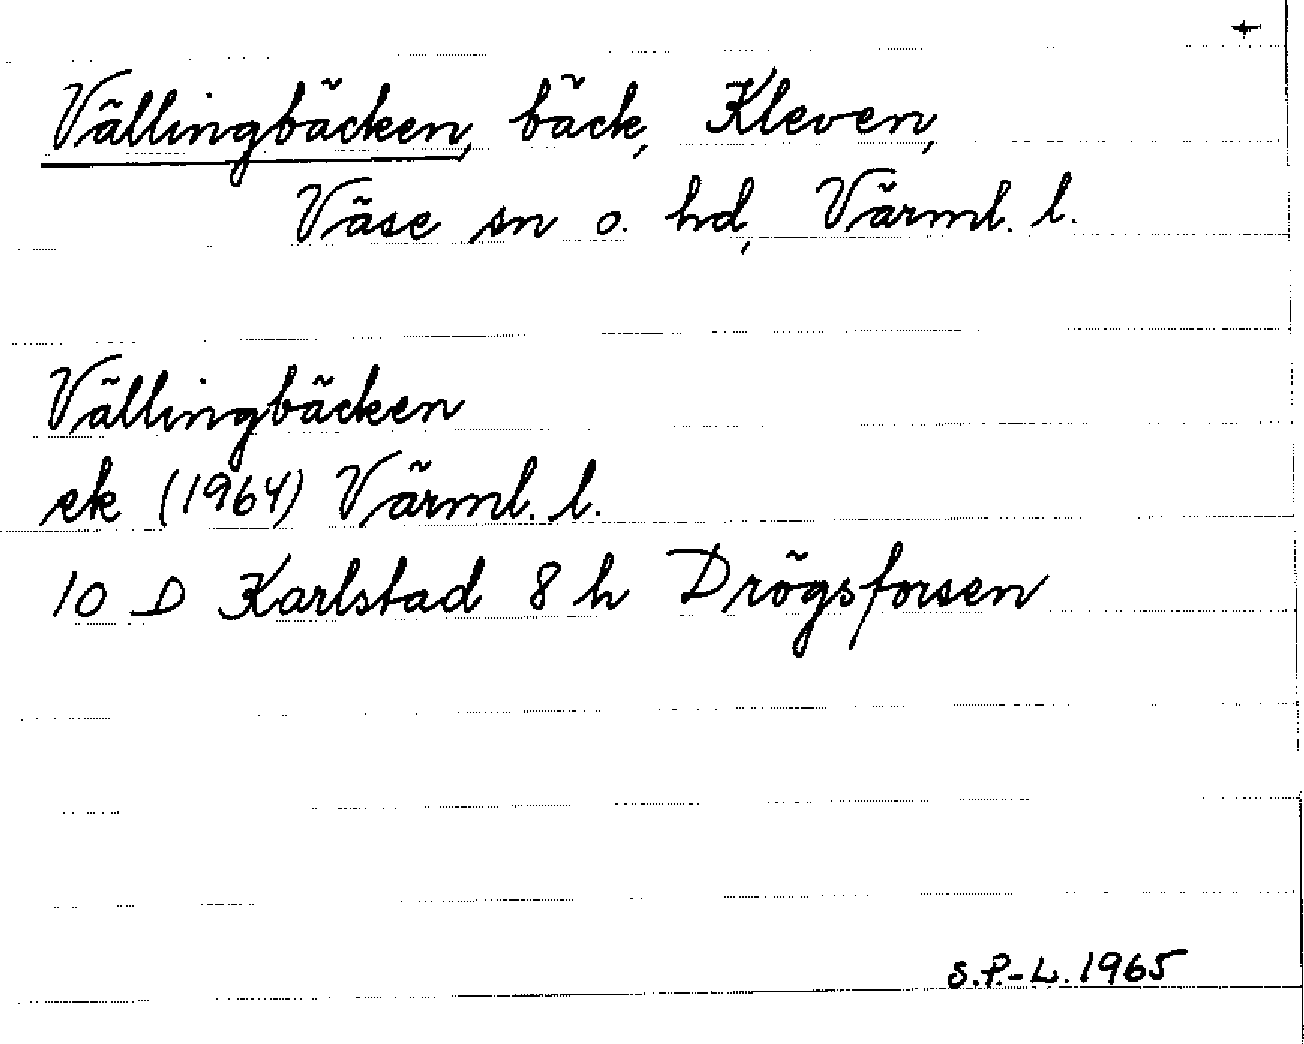 +
Vällingbäcken, bäck, Kleven,
Väse sn o. hd, Värml. l.
Vällingbäcken
ek (1964) Värml. l.
10 D Karlstad 8 h Drögsforsen
S.P.-L. 1965